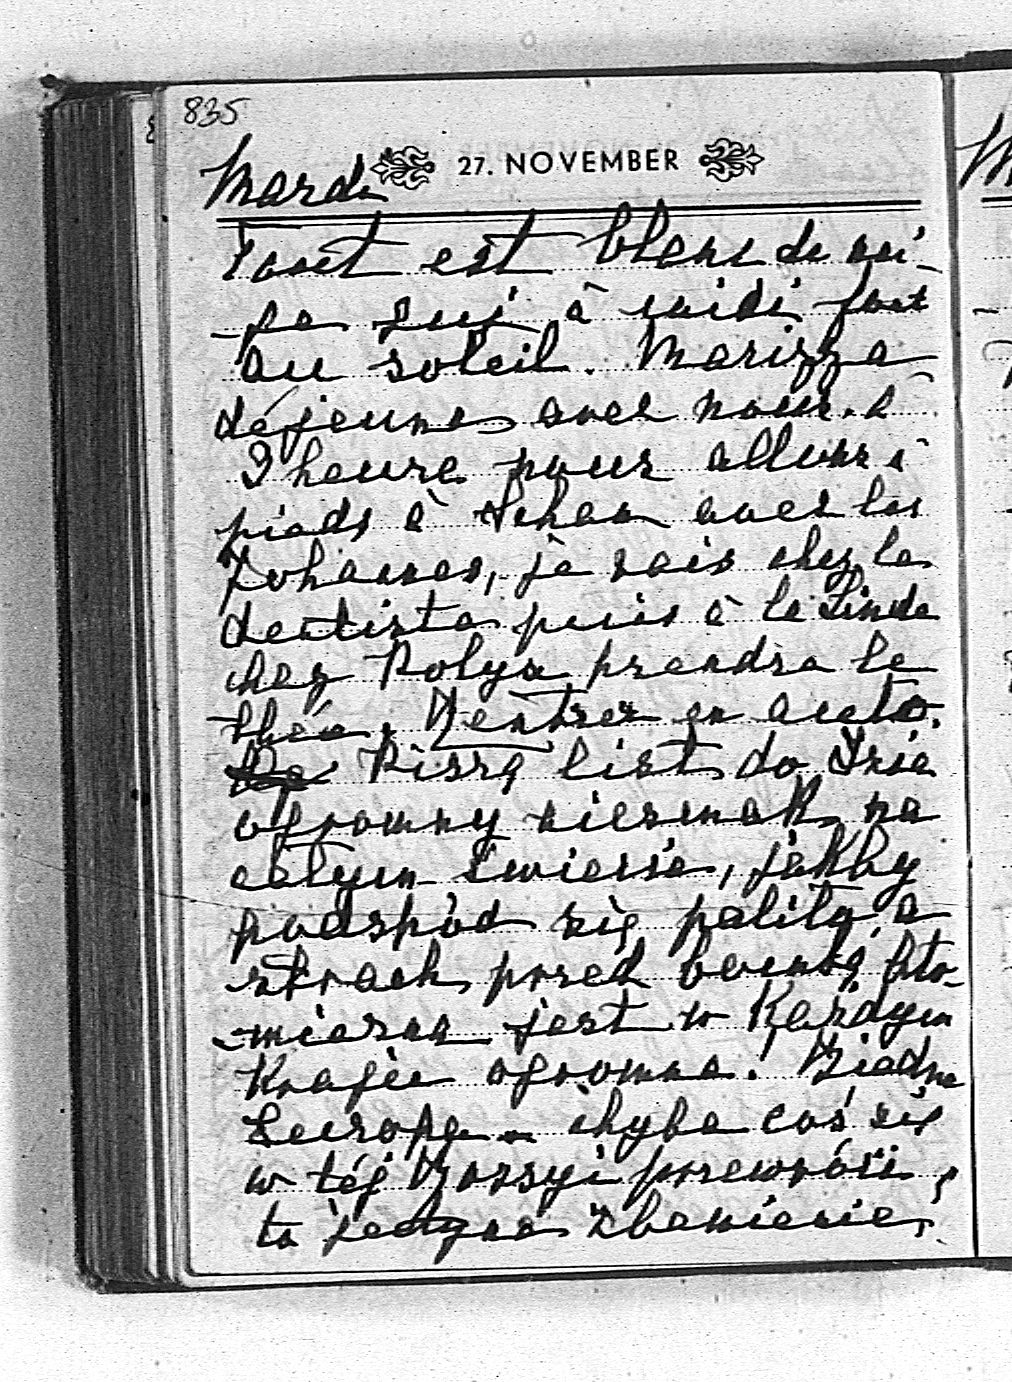 835
Mardi 27. NOVEMBER
Tout est blanc de nei-
ge qui à midi font
au soleil. Marizza
déjeune avec nous. à
2 heure pour aller à
pieds à avec les
Johannes, je vais chez le
dentiste puis à la Linde
chez Polyx prendre le
thée. Rentrer en auto.
Piszą list do Irie
ogromny niesmak na
całym świecie, jakby
podspód się paliło, a
strach przed bombą Ato-
miczna jest w Każdym
Kraju ogromna! Biedna
Europa chyba coś się
w téj Rossyi przewróci,
to jedyne zbawienie,